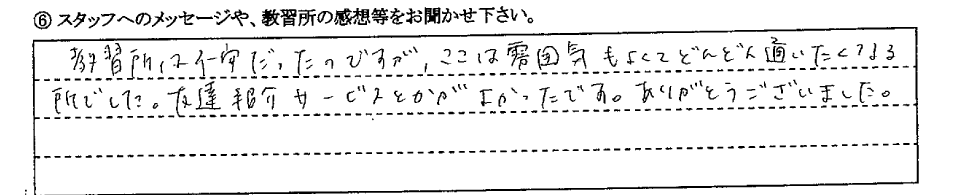 ⑥ スタッフへのメッセージや、教習所の感想等をお聞かせ下さい。
教習所は不安だったのですが、ここは雰囲気もよくてどんどん通いたくなる
所でした。友達紹介サービスとかがよかったです。ありがとうございました。